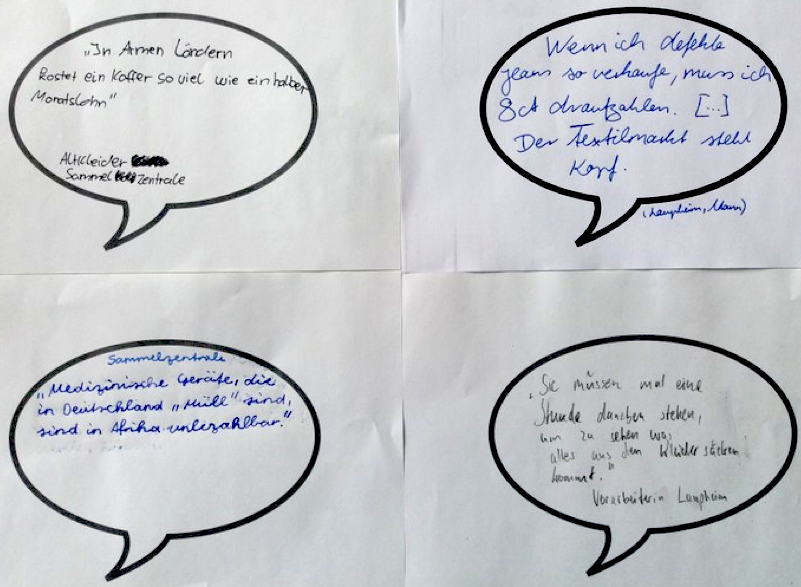 „In Armen Ländern
kostet ein Koffer so viel wie ein halber
Monatslohn"
Altkleider
Sammel Zentrale
Wenn ich defekte
Jeans so verkaufe, muss ich
8ct draufzahlen. [...]
Der Textilmarkt steht
Kopf.
(Laupheim, Mann)
Sammelzentrale
„Medizinische Geräte, die
in Deutschland „Müll" sind,
sind in Afrika unbezahlbar."
„Sie müssen mal eine
Stunde daneben stehen,
um zu sehen was
alles aus den Kleidersäcken
kommt."
Vorarbeiterin Laupheim